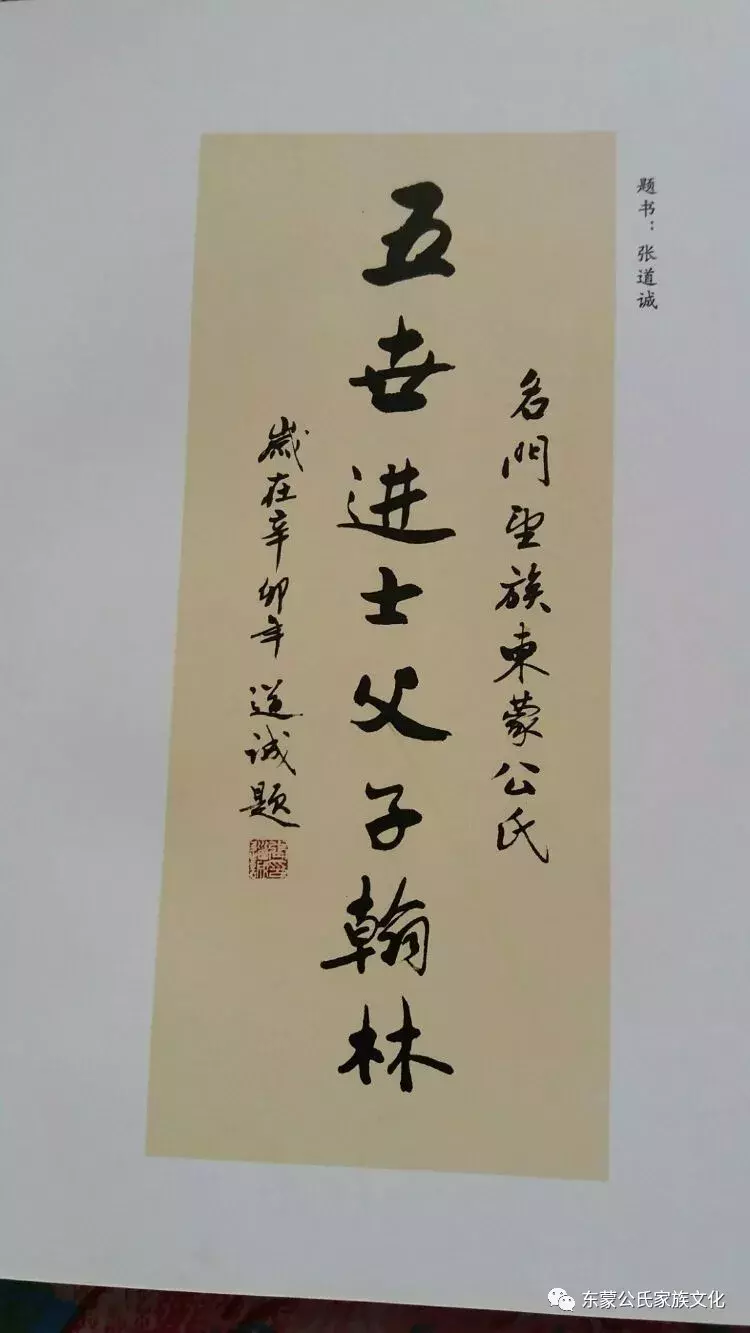 题书：张道诚
名門望族東蒙公氏
五世进士父子翰林
歲在辛卯年道诚题
东蒙公氏家族文化